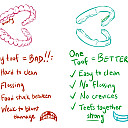 y toof = BAD!!:
Hard to clean
Flossing
Food stuck between
Weak to blunt
damage
One
Toof = BETTER
✓ Easy to clean
✓ No Flossing
✓ No crevices
✓ Teefs together
strong